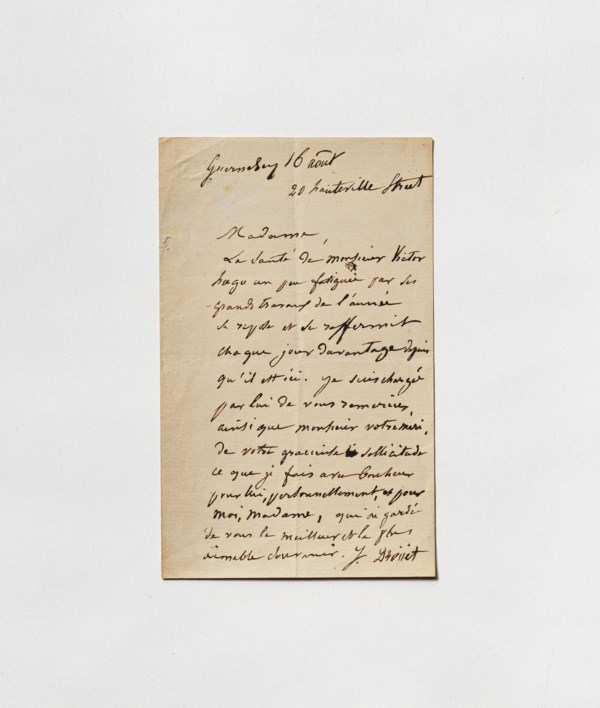 Guernesey 16 août
20 hauteville Street
Madame,
La santé de monsieur Victor
hugo un peu fatiguée par ses
grands travaux de l'année
se repose et se raffermit
chaque jour davantage depuis
qu'il est ici. Je suis chargée
par lui de vous remercier,
ainsi que monsieur votre mari,
de votre gracieuse sollicitude
ce que je fais avec bonheur
pour lui, personnellement, et pour
moi, Madame, qui ai gardé
de vous le meilleur et le plus
aimable souvenir. J. Drouet